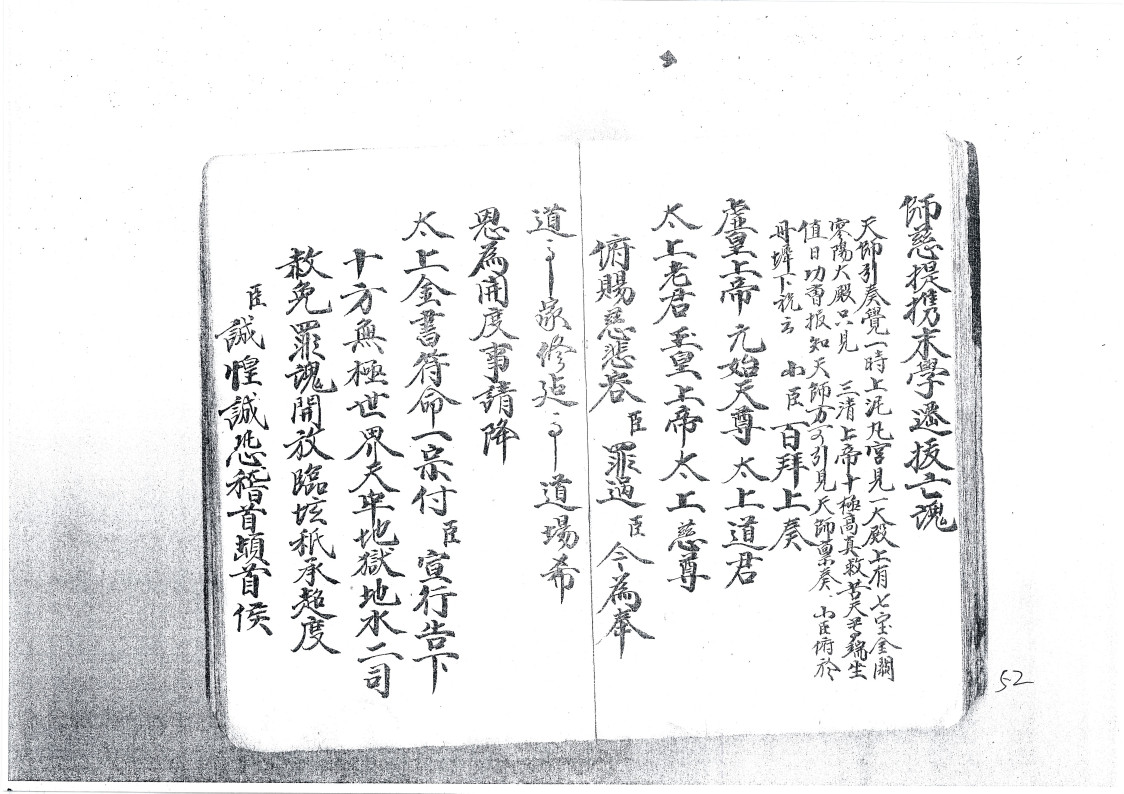 師慈提携末學遷拔亡魂
天師引奏覺一時上泥丸宮見一大殿上有七宝金闕
寥陽大殿只見 三清上帝十極高真救苦天尊端坐
值日功曹报知天師方可引見天師稟奏 小臣俯於
丹墀下祝云 小臣百拜上奏
虛皇上帝 元始天尊 太上道君
太上老君 玉皇上帝 太上慈尊
俯賜慈悲容臣罪過臣今為奉
道 家修 道場希
恩為開度事請降
太上金書符命一宗付臣宣行告下
十方無極世界大牢地獄地水二司
赦免罪魂開放臨坛秖承超度
臣誠惶誠恐稽首頓首俟
52